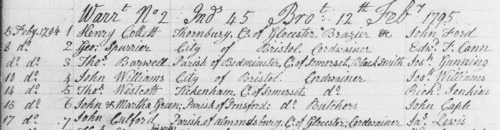 Warrt. No. 2 Ind 45 Brot. 12th Feby 1795
5 Feby. 1794 1 Henry Collett Thornbury, Co. of Glocester Brazier &c John Ford
8 do. 2 Geo. Spurrier City of Bristol Cordwainer Edwd. T. Cann
do. do. 3 Thos. Barwell Parish of Bedminster, C. of Somerset, Black Smith Jos. Gunning
10 do. 4 John Williams City of Bristol Cordwainer Jos. Williams
14 do. 5 Thos. Westcott Tickenham, C. of Somerset do. Richd. Jenkins
15 do. 6 John & Martha Green, Parish of do. Butchers John Caple
17 do. 7 John Parish of Almondsbury, C. of Glocester, Cordwainer Jas. Lewis